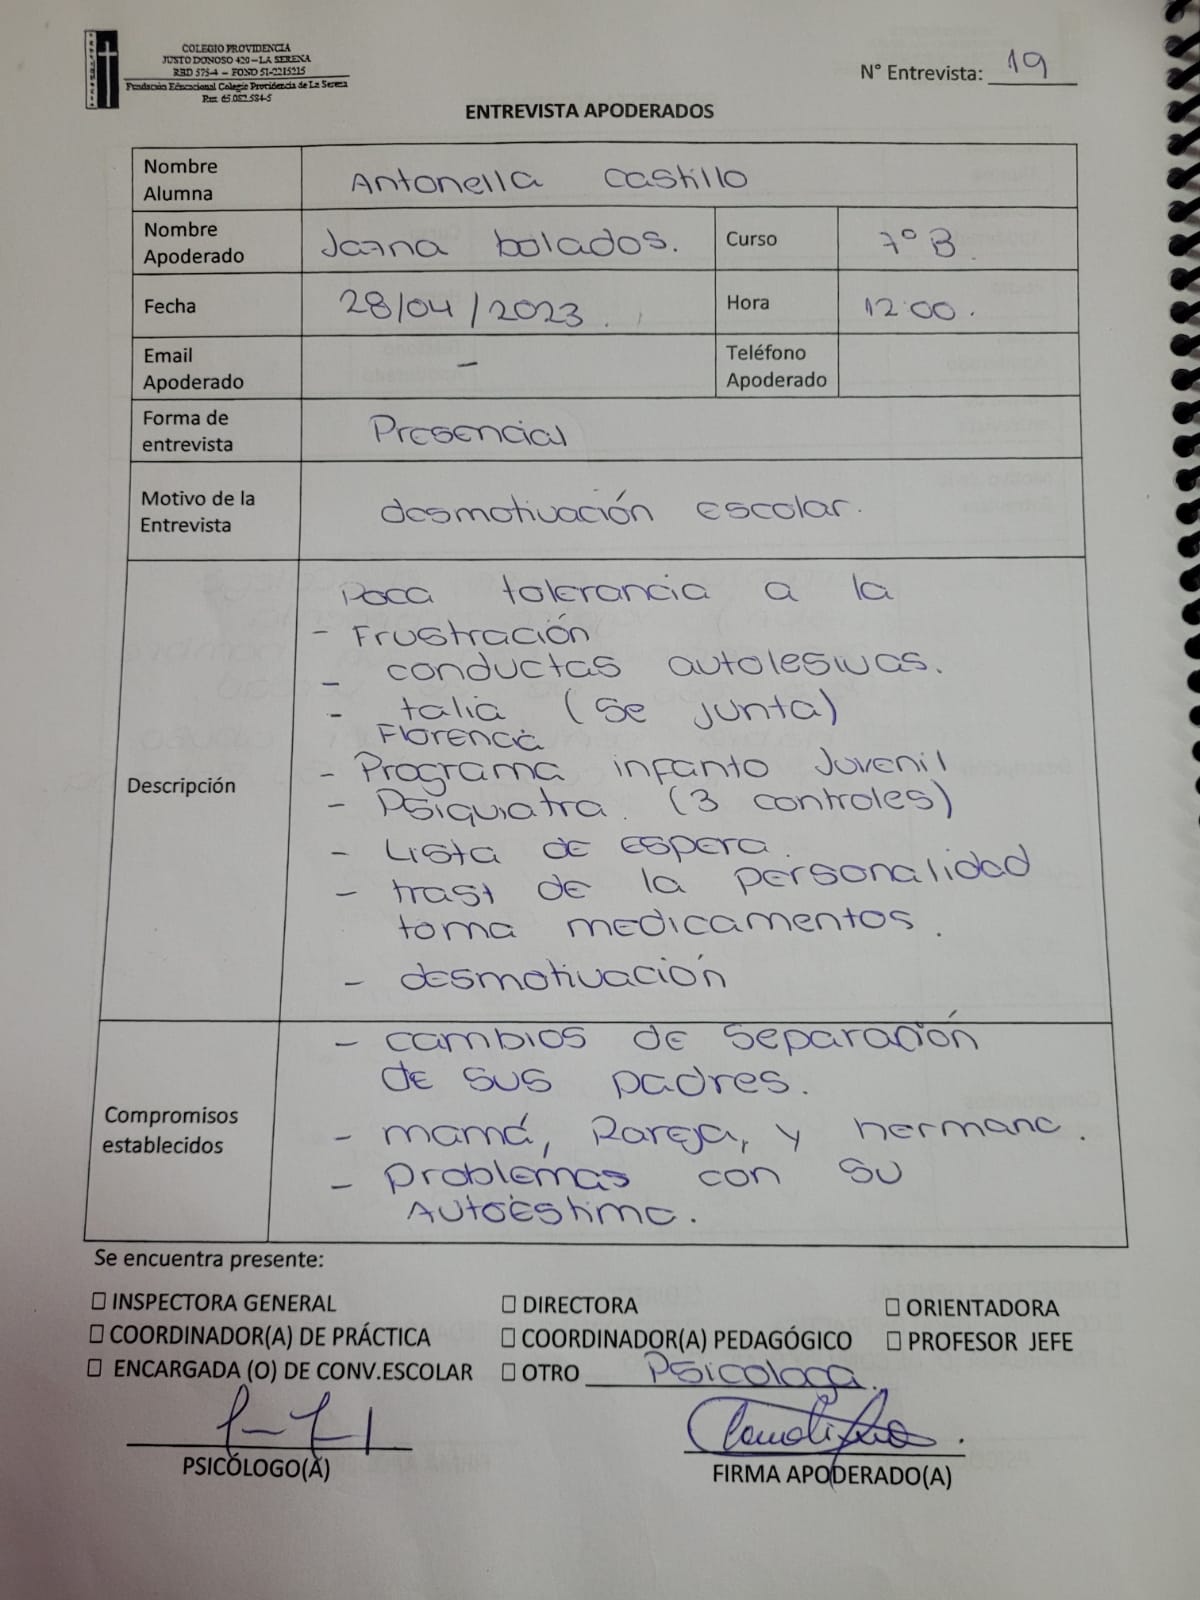 COLEGIO PROVIDENCIA
JUSTO DONOSO 420 – LA SERENA
RBD 575-4 – FONO 51-2215215
Fundación Educacional Colegio Providencia de La Serena
Rut: 65.082.584-5
N° Entrevista: 19
ENTREVISTA APODERADOS
Nombre Alumna
Antonella Castillo
Nombre Apoderado
bolados.
Curso
7° B.
Fecha
28/04/2023.
Hora
12:00.
Email Apoderado
-
Teléfono Apoderado
Forma de entrevista
Presencial
Motivo de la Entrevista
desmotivación escolar.
Descripción
Poca tolerancia a la
- Frustración
- conductas autolesivas.
- talia (se junta)
Florencia
- Programa infanto Juvenil
- Psiquiatra. (3 controles)
- Lista de espera.
- trast de la personalidad
toma medicamentos.
- desmotivación
Compromisos establecidos
- cambios de separación
de sus padres.
- mamá, Pareja, y hermana.
- Problemas con su
Autoéstima.
Se encuentra presente:
☐ INSPECTORA GENERAL ☐ DIRECTORA ☐ ORIENTADORA
☐ COORDINADOR(A) DE PRÁCTICA ☐ COORDINADOR(A) PEDAGÓGICO ☐ PROFESOR JEFE
☐ ENCARGADA (O) DE CONV.ESCOLAR ☐ OTRO Psicologa.
PSICÓLOGO(A)
FIRMA APODERADO(A)